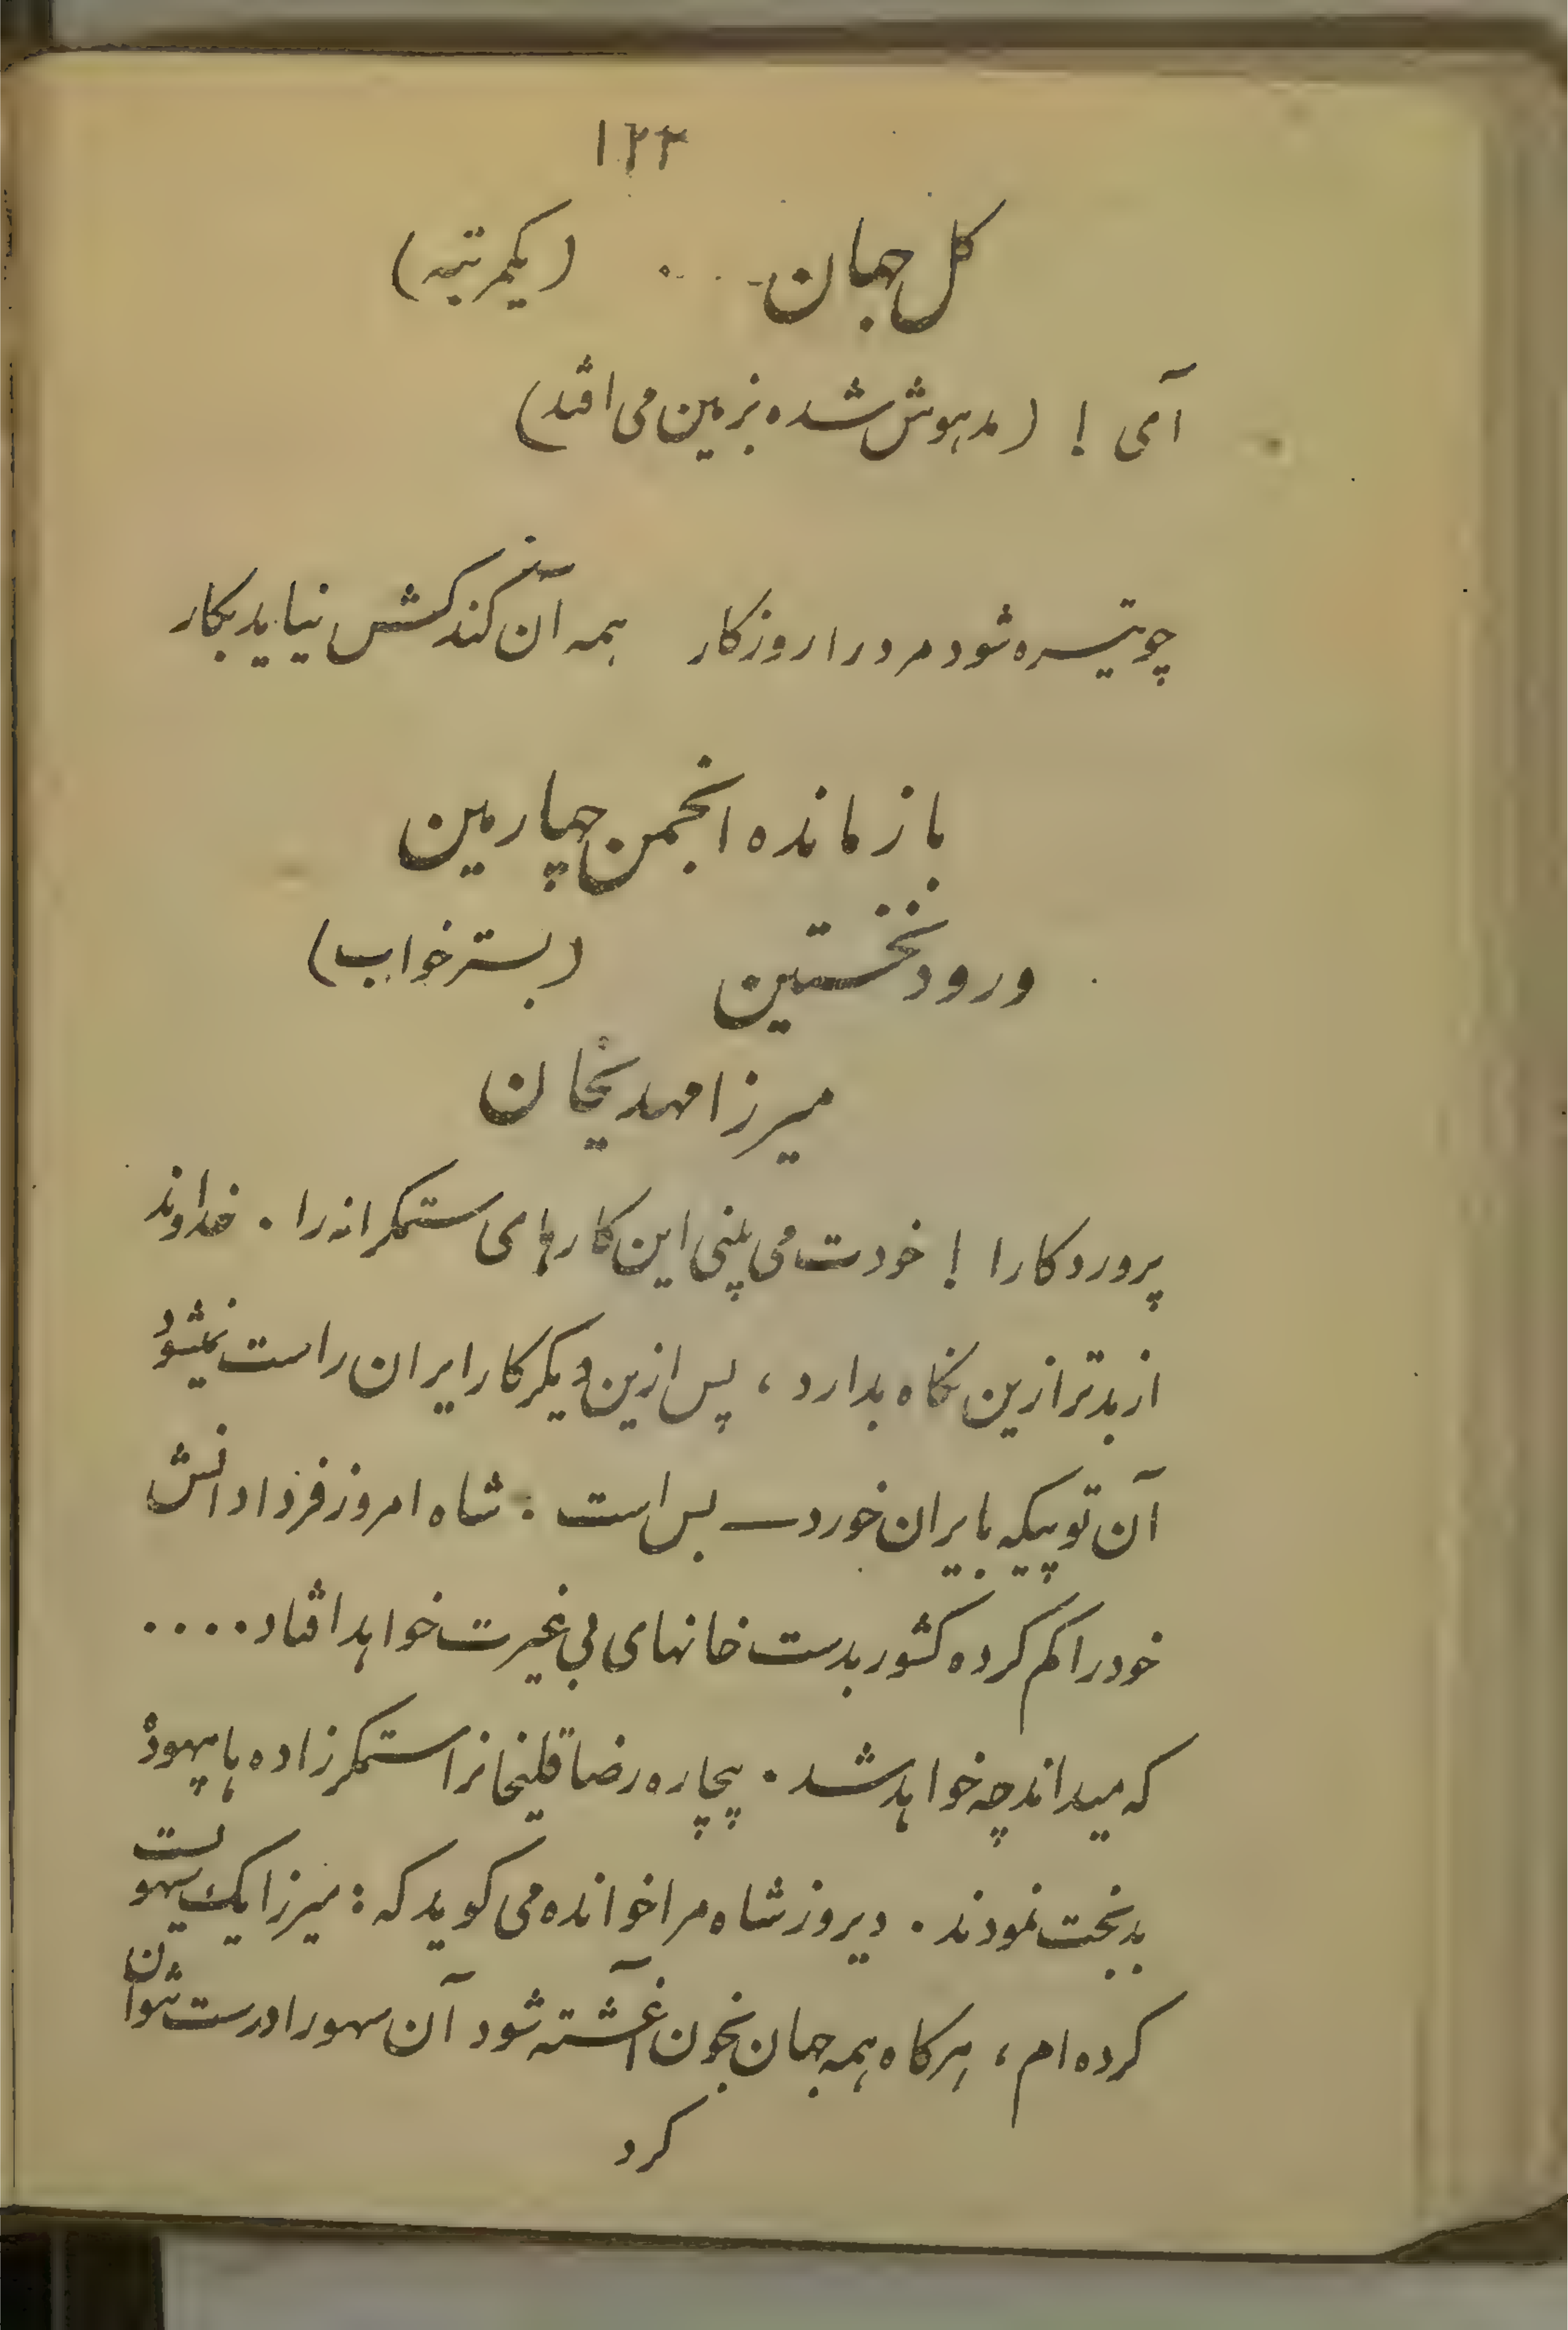 ۱۲۲
کل جهان ... (یکمرتبه)
آمی ! (مدهوش شده بزمین می افتد)
چو تیره شود مرد را روزکار همه آن کند کش نیاید بکار
باز مانده انجمن چهارمین
ورود نخستین (بستر خواب)
میرزا مهدیخان
پروردکارا ! خودت می بینی این کارهای ستمکرانه را . خداوند
از بدتر ازین نکاه بدارد ، پس ازین دیکر کار ایران راست نمیشود
آن توپیکه بایران خورد بس است . شاه امروز فردا دانش
خود را کم کرده کشور بدست خانهای بی غیرت خواهد افتاد . . . .
که میداند چه خواهد شد . بیچاره رضا قلیخانرا ستمکرزاده ها بیهوده
بدبخت نمودند . دیروز شاه مرا خوانده می کوید که : میرزا یک سهویست
کرده ام ، هرکاه همه جهان بخون آغشته شود آن سهو را درست نتوان
کرد